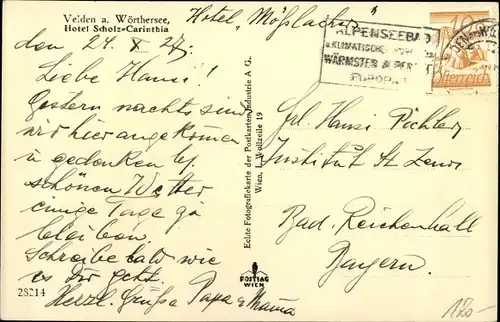 Velden a. Wörthersee,
Hotel Scholz-Carinthia
Hotel "Mößlacher"
den 24. X 27.
Liebe Hansi!
Gestern nachts sind
wir hier angekomen
u gedenken bf.
schönen Wetter
einige Tage zu
bleiben.
Schreibe bald wie
es Dir geht.
Herzl. Grüße Papa & Mama
28214
Echte Fotografiekarte der Postkarten-Industrie A G.
Wien, I., Wollzeile 19
POSTIAG
WIEN
ALPENSEEBAD
KLIMATISCHER
WÄRMSTER ALPENSEE
EUROPAS
10
Österreich
Frl. Hansi Pichler
Institut St Zeno
Bad. Reichenhall
Bayern.
120-